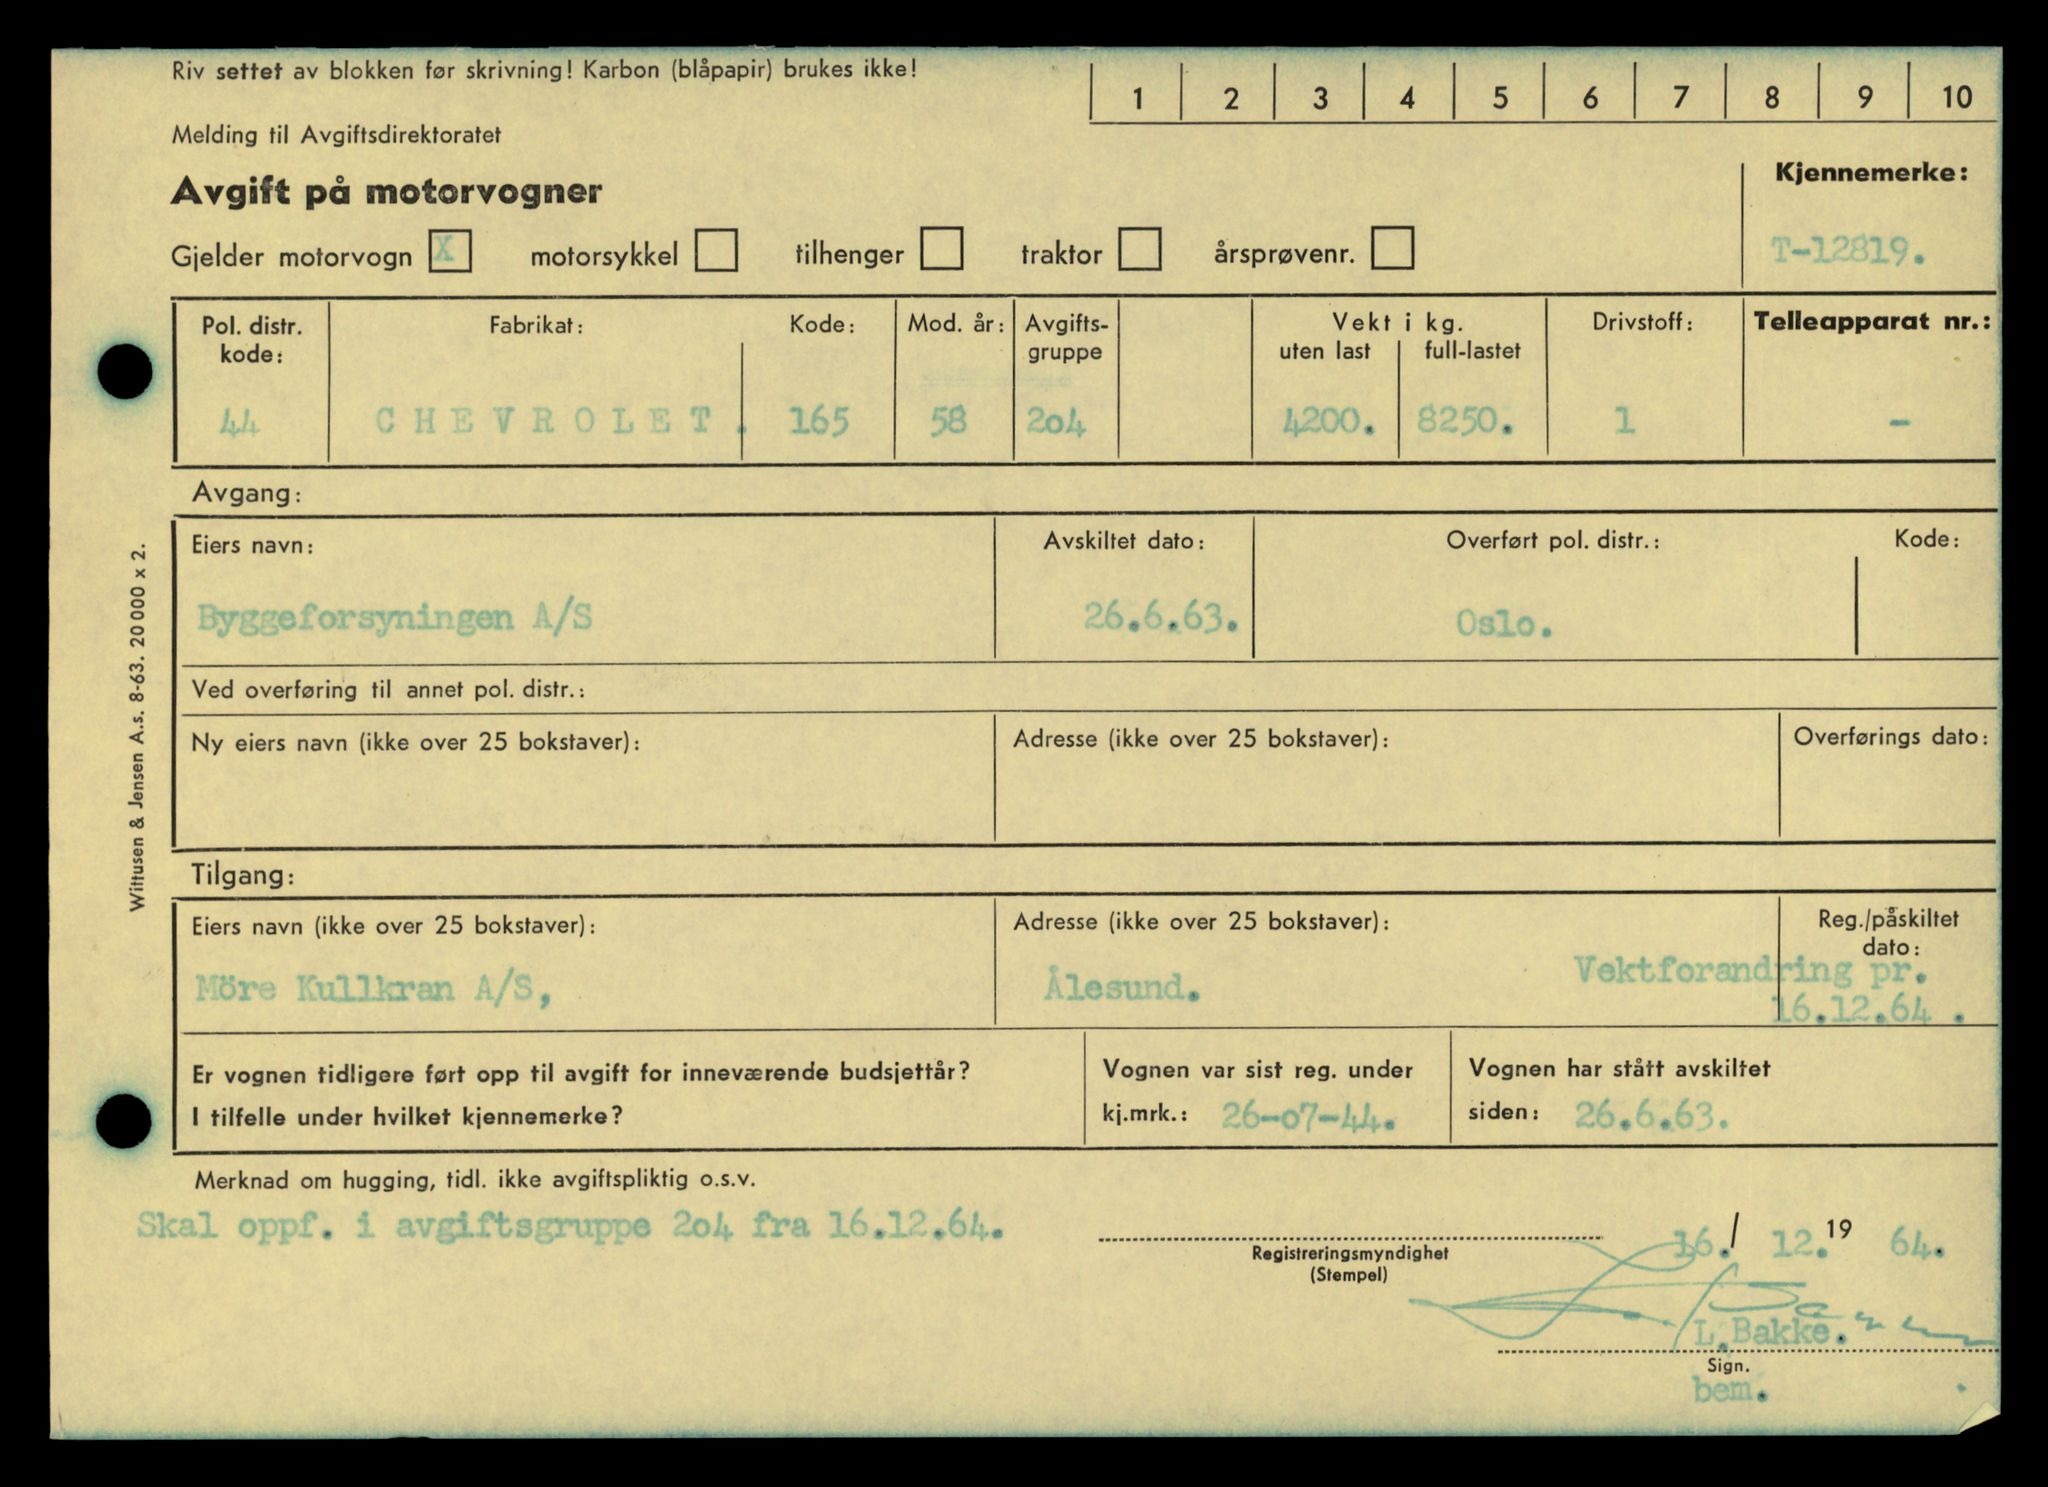 Riv settet av blokken før skrivning! Karbon (blåpapir) brukes ikke!
1 2 3 4 5 6 7 8 9 10
Melding til Avgiftsdirektoratet
Avgift på motorvogner
Kjennemerke:
Gjelder motorvogn X motorsykkel tilhenger traktor årsprøvenr.
T-12819.
Pol. distr. kode: Fabrikat: Kode: Mod. år: Avgifts-gruppe Vekt i kg. uten last full-lastet Drivstoff: Telleapparat nr.:
44 CHEVROLET. 165 58 2o4 4200. 8250. 1 -
Avgang:
Eiers navn: Avskiltet dato: Overført pol. distr.: Kode:
Byggeforsyningen A/S 26.6.63. Oslo.
Ved overføring til annet pol. distr.:
Ny eiers navn (ikke over 25 bokstaver): Adresse (ikke over 25 bokstaver): Overførings dato:
Tilgang:
Eiers navn (ikke over 25 bokstaver): Adresse (ikke over 25 bokstaver): Reg./påskiltet dato:
Möre Kullkran A/S, Ålesund. Vektforandring pr.
16.12.64 .
Er vognen tidligere ført opp til avgift for inneværende budsjettår? Vognen var sist reg. under Vognen har stått avskiltet
I tilfelle under hvilket kjennemerke? kj.mrk.: 26-o7-44. siden: 26.6.63.
Merknad om hugging, tidl. ikke avgiftspliktig o.s.v.
Skal oppf. i avgiftsgruppe 2o4 fra 16.12.64.
16./ 12. 19 64.
Registreringsmyndighet
(Stempel)
L.Bakke.
Sign.
bem.
Wittusen & Jensen A.s. 8-63. 20 000 x 2.